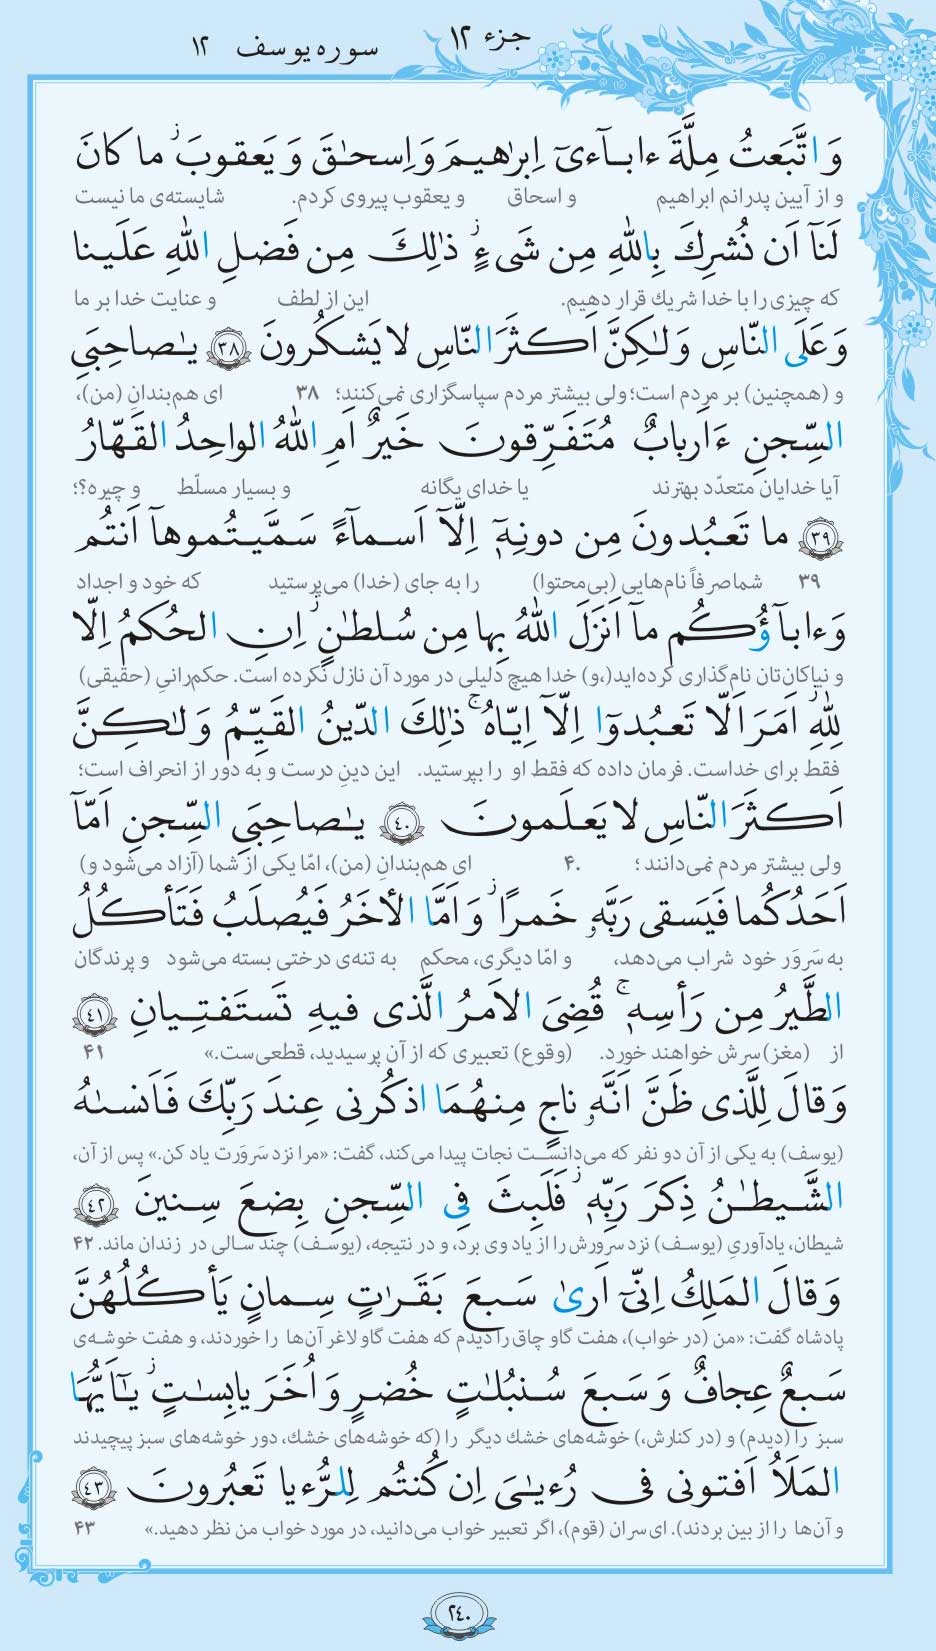 جزء ۱۲
سوره یوسف ۱۲
وَ اتَّبَعتُ مِلَّةَ ءابآءیٓ اِبرٰهیمَ وَ اِسحٰقَ وَ یَعقوبَۚ ما کانَ
و از آیین پدرانم ابراهیم و اسحاق و یعقوب پیروی کردم. شایسته‌ی ما نیست
لَنآ اَن نُشرِكَ بِاللّٰهِ مِن شَیءٍۚ ذٰلِكَ مِن فَضلِ اللّٰهِ عَلَینا
که چیزی را با خدا شریك قرار دهیم. این از لطف و عنایت خدا بر ما
وَ عَلَی النّاسِ وَلٰکِنَّ اَکثَرَ النّاسِ لا یَشکُرونَ ﴿۳۸﴾ یٰصاحِبَیِ
و (همچنین) بر مردم است؛ ولی بیشتر مردم سپاسگزاری نمی‌کنند؛ ۳۸ ای هم‌بندانِ (من)،
السِّجنِ ءَاَربابٌ مُتَفَرِّقونَ خَیرٌ اَمِ اللّٰهُ الواحِدُ القَهّارُ
آیا خدایان متعدّد بهترند یا خدای یگانه و بسیار مسلّط و چیره؟؛
﴿۳۹﴾ ما تَعبُدونَ مِن دونِهٖٓ اِلّآ اَسمآءً سَمَّیتُموهآ اَنتُم
۳۹ شما صرفاً نام‌هایی (بی‌محتوا) را به جای (خدا) می‌پرستید که خود و اجداد
وَ ءابآؤُکُم مآ اَنزَلَ اللّٰهُ بِها مِن سُلطٰنٍۚ اِنِ الحُکمُ اِلّا
و نیاکان‌تان نام‌گذاری کرده‌اید(،و) خدا هیچ دلیلی در مورد آن نازل نکرده است. حکم‌رانیِ (حقیقی)
لِلّٰهِۚ اَمَرَ اَلّا تَعبُدوٓا اِلّآ اِیّاهُۚ ذٰلِكَ الدّینُ القَیِّمُ وَلٰکِنَّ
فقط برای خداست. فرمان داده که فقط او را بپرستید. این دینِ درست و به دور از انحراف است؛
اَکثَرَ النّاسِ لا یَعلَمونَ ﴿۴۰﴾ یٰصاحِبَیِ السِّجنِ اَمّآ
ولی بیشتر مردم نمی‌دانند؛ ۴۰ ای هم‌بندانِ (من)، امّا یکی از شما (آزاد می‌شود و)
اَحَدُکُما فَیَسقی رَبَّهٗ خَمرًاۚ وَ اَمَّا الأخَرُ فَیُصلَبُ فَتَأکُلُ
به سَروَر خود شراب می‌دهد، و امّا دیگری، محکم به تنه‌ی درختی بسته می‌شود و پرندگان
الطَّیرُ مِن رَأسِهٖۚ قُضِیَ الاَمرُ الَّذی فیهِ تَستَفتِیانِ ﴿۴۱﴾
از (مغز) سرش خواهند خورد. (وقوع) تعبیری که از آن پرسیدید، قطعی‌ست.» ۴۱
وَ قالَ لِلَّذی ظَنَّ اَنَّهٗ ناجٍ مِنهُمَا اذکُرنی عِندَ رَبِّكَ فَاَنسٰهُ
(یوسف) به یکی از آن دو نفر که می‌دانست نجات پیدا می‌کند، گفت: «مرا نزد سَروَرت یاد کن.» پس از آن،
الشَّیطٰنُ ذِکرَ رَبِّهٖۚ فَلَبِثَ فِی السِّجنِ بِضعَ سِنینَ ﴿۴۲﴾
شیطان، یادآوریِ (یوسف) نزد سرورش را از یاد وی برد، و در نتیجه، (یوسف) چند سالی در زندان ماند. ۴۲
وَ قالَ المَلِكُ اِنّیٓ اَریٰ سَبعَ بَقَرٰتٍ سِمانٍ یَأکُلُهُنَّ
پادشاه گفت: «من (در خواب)، هفت گاو چاق را دیدم که هفت گاو لاغر آن‌ها را خوردند، و هفت خوشه‌ی
سَبعٌ عِجافٌ وَ سَبعَ سُنبُلٰتٍ خُضرٍ وَ اُخَرَ یابِسٰتٍۚ یٰٓاَیُّهَا
سبز را (دیدم) و (در کنارش،) خوشه‌های خشك دیگر را (که خوشه‌های خشك، دور خوشه‌های سبز پیچیدند
المَلَاُ اَفتونی فی رُءیٰیَ اِن کُنتُم لِلرُّءیا تَعبُرونَ ﴿۴۳﴾
و آن‌ها را از بین بردند). ای سران (قوم)، اگر تعبیر خواب می‌دانید، در مورد خواب من نظر دهید.» ۴۳
۲۴۰